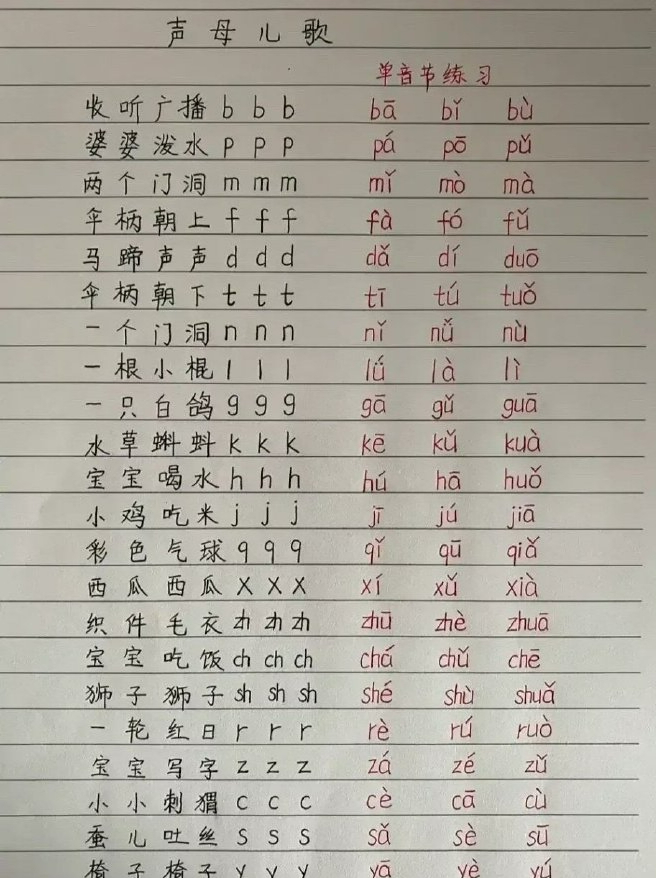 声母儿歌
单音节练习
收听广播 b b b bā bǐ bù
婆婆泼水 p p p pá pō pǔ
两个门洞 m m m mǐ mò mà
伞柄朝上 f f f fà fó fǔ
马蹄声声 d d d dǎ dí duō
伞柄朝下 t t t tī tú tuǒ
一个门洞 n n n nǐ nǚ nù
一根小棍 l l l lǘ là lì
一只白鸽 g g g gā gǔ guā
水草蝌蚪 k k k kē kǔ kuà
宝宝喝水 h h h hú hā huǒ
小鸡吃米 j j j jī jú jiā
彩色气球 q q q qǐ qū qiǎ
西瓜西瓜 X X X xí xǔ xià
织件毛衣 zh zh zh zhū zhè zhuā
宝宝吃饭 ch ch ch chá chǔ chē
狮子狮子 sh sh sh shé shù shuǎ
一轮红日 r r r rè rú ruò
宝宝写字 z z z zá zé zǔ
小小刺猬 c c c cè cā cù
蚕儿吐丝 s s s sǎ sè sū
椅子椅子 y y y yā yè yú